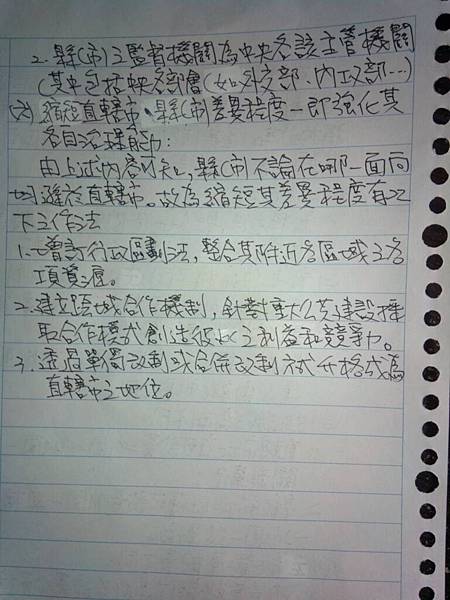 2. 縣(市)之監督機關為中央各該主管機關
(其中包括中央各部會(如外交部、內政部…)
(六)縮短直轄市、縣(市)差異程度—即強化其
各自治理能力:
由上述內容可知,縣(市)不論在哪一面向
均難於直轄市。故為縮短其差異程度有以
下之作法
1. 增訂行政區劃法,整合其附近各區域之各
項資源。
2. 建立跨域合作機制,針對重大公共建設採
取合作模式創造彼此之利益和競爭力。
3. 透過單獨改制或合併改制方式升格成為
直轄市之地位。